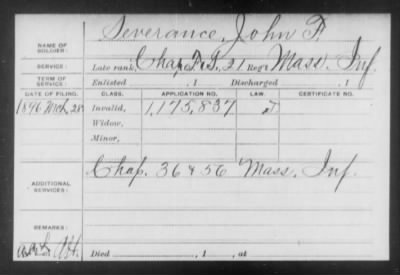 NAME OF SOLDIER: Severance, John F.
SERVICE: Late rank, Chap. F.S., 21 Reg't Mass. Inf.
TERM OF SERVICE: Enlisted , 1 Discharged , 1
DATE OF FILING. CLASS. APPLICATION NO. LAW. CERTIFICATE NO.
1896 Mch. 28 Invalid, 1,175,837
Widow,
Minor,
ADDITIONAL SERVICES: Chap. 36 & 56 Mass. Inf.
REMARKS:
Died , 1 , at